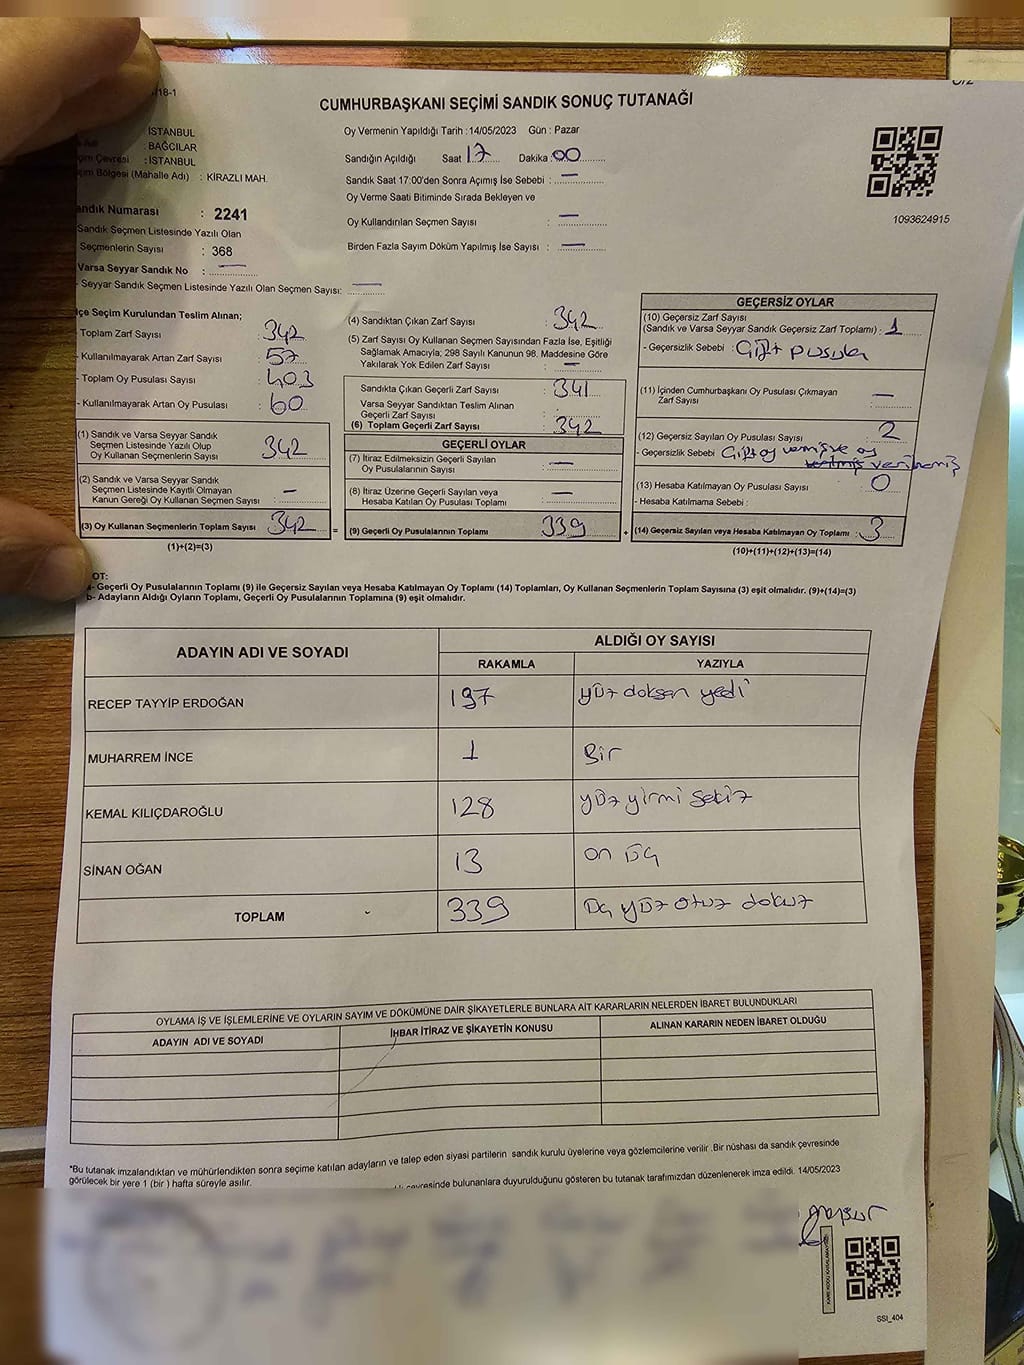 /18-1
CUMHURBAŞKANI SEÇİMİ SANDIK SONUÇ TUTANAĞI
İSTANBUL
: BAĞCILAR
Çevresi : İSTANBUL
Bölgesi (Mahalle Adı) : KİRAZLI MAH.
Oy Vermenin Yapıldığı Tarih : 14/05/2023 Gün : Pazar
Sandığın Açıldığı Saat 17 Dakika 00
Sandık Saat 17:00'den Sonra Açımış İse Sebebi : —
Oy Verme Saati Bitiminde Sırada Bekleyen ve
Oy Kullandırılan Seçmen Sayısı : —
Birden Fazla Sayım Döküm Yapılmış İse Sayısı : —
1093624915
andık Numarası : 2241
Sandık Seçmen Listesinde Yazılı Olan
Seçmenlerin Sayısı : 368
Varsa Seyyar Sandık No : —
- Seyyar Sandık Seçmen Listesinde Yazılı Olan Seçmen Sayısı: —
lçe Seçim Kurulundan Teslim Alınan;
Toplam Zarf Sayısı : 342
- Kullanılmayarak Artan Zarf Sayısı : 57
- Toplam Oy Pusulası Sayısı : 403
- Kullanılmayarak Artan Oy Pusulası : 60
(1) Sandık ve Varsa Seyyar Sandık
Seçmen Listesinde Yazılı Olup
Oy Kullanan Seçmenlerin Sayısı : 342
(2) Sandık ve Varsa Seyyar Sandık
Seçmen Listesinde Kayıtlı Olmayan
Kanun Gereği Oy Kullanan Seçmen Sayısı : —
(3) Oy Kullanan Seçmenlerin Toplam Sayısı : 342 =
(1)+(2)=(3)
(4) Sandıktan Çıkan Zarf Sayısı : 342
(5) Zarf Sayısı Oy Kullanan Seçmen Sayısından Fazla İse, Eşitliği
Sağlamak Amacıyla; 298 Sayılı Kanunun 98. Maddesine Göre
Yakılarak Yok Edilen Zarf Sayısı : —
Sandıkta Çıkan Geçerli Zarf Sayısı : 341
Varsa Seyyar Sandıktan Teslim Alınan
Geçerli Zarf Sayısı :
(6) Toplam Geçerli Zarf Sayısı : 342
GEÇERLİ OYLAR
(7) İtiraz Edilmeksizin Geçerli Sayılan
Oy Pusulalarının Sayısı : —
(8) İtiraz Üzerine Geçerli Sayılan veya
Hesaba Katılan Oy Pusulası Toplamı : —
(9) Geçerli Oy Pusulalarının Toplamı : 339 +
GEÇERSİZ OYLAR
(10) Geçersiz Zarf Sayısı
(Sandık ve Varsa Seyyar Sandık Geçersiz Zarf Toplamı) : 1
- Geçersizlik Sebebi : Çift pusula
(11) İçinden Cumhurbaşkanı Oy Pusulası Çıkmayan
Zarf Sayısı : —
(12) Geçersiz Sayılan Oy Pusulası Sayısı : 2
- Geçersizlik Sebebi Çift oy vermiş ve oy
verilmemiş
(13) Hesaba Katılmayan Oy Pusulası Sayısı : 0
- Hesaba Katılmama Sebebi :
(14) Geçersiz Sayılan veya Hesaba Katılmayan Oy Toplamı : 3
(10)+(11)+(12)+(13)=(14)
OT:
a- Geçerli Oy Pusulalarının Toplamı (9) ile Geçersiz Sayılan veya Hesaba Katılmayan Oy Toplamı (14) Toplamları, Oy Kullanan Seçmenlerin Toplam Sayısına (3) eşit olmalıdır. (9)+(14)=(3)
b- Adayların Aldığı Oyların Toplamı, Geçerli Oy Pusulalarının Toplamına (9) eşit olmalıdır.
ADAYIN ADI VE SOYADI ALDIĞI OY SAYISI
RAKAMLA YAZIYLA
RECEP TAYYİP ERDOĞAN 197 yüz doksan yedi
MUHARREM İNCE 1 Bir
KEMAL KILIÇDAROĞLU 128 yüz yirmi sekiz
SİNAN OĞAN 13 on üç
TOPLAM 339 Üç yüz otuz dokuz
OYLAMA İŞ VE İŞLEMLERİNE VE OYLARIN SAYIM VE DÖKÜMÜNE DAİR ŞİKAYETLERLE BUNLARA AİT KARARLARIN NELERDEN İBARET BULUNDUKLARI
ADAYIN ADI VE SOYADI İHBAR İTİRAZ VE ŞİKAYETİN KONUSU ALINAN KARARIN NEDEN İBARET OLDUĞU
*Bu tutanak imzalandıktan ve mühürlendikten sonra seçime katılan adayların ve talep eden siyasi partilerin sandık kurulu üyelerine veya gözlemcilerine verilir .Bir nüshası da sandık çevresinde
görülecek bir yere 1 (bir ) hafta süreyle asılır.
çevresinde bulunanlara duyurulduğunu gösteren bu tutanak tarafımızdan düzenlenerek imza edildi. 14/05/2023
SSI_404